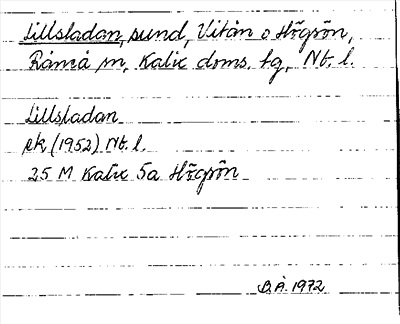 Lillsladan, sund, Vitån o Högsön,
Råneå sn, Kalix doms. tg, Nb. l.
Lillsladan
ek (1952) Nb. l.
25 M Kalix 5a Högsön
B.Å. 1972